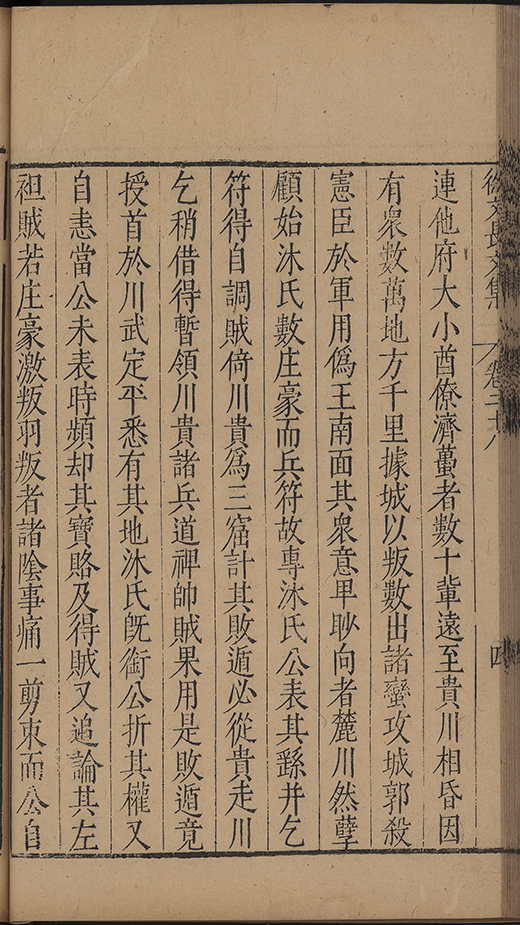 徐文長文集 卷二十八 四
連他府大小酋僚濟蠆者數十輩遠至貴川相昏因
有衆數萬地方千里據城以叛數出諸蠻攻城郭殺
憲臣於軍用僞王南面其衆意卑眇向者麓川然孽
顧始沐氏數庄豪而兵符故專沐氏公表其繇并乞
符得自調賊倚川貴爲三窟計其敗遁必從貴走川
乞稍借得暫領川貴諸兵道裨帥賊果用是敗遁竟
授首於川武定平悉有其地沐氏旣銜公折其權又
自恚當公未表時頻却其寶賂及得賊又追論其左
袒賊若庄豪激叛羽叛者諸陰事痛一剪束而公自